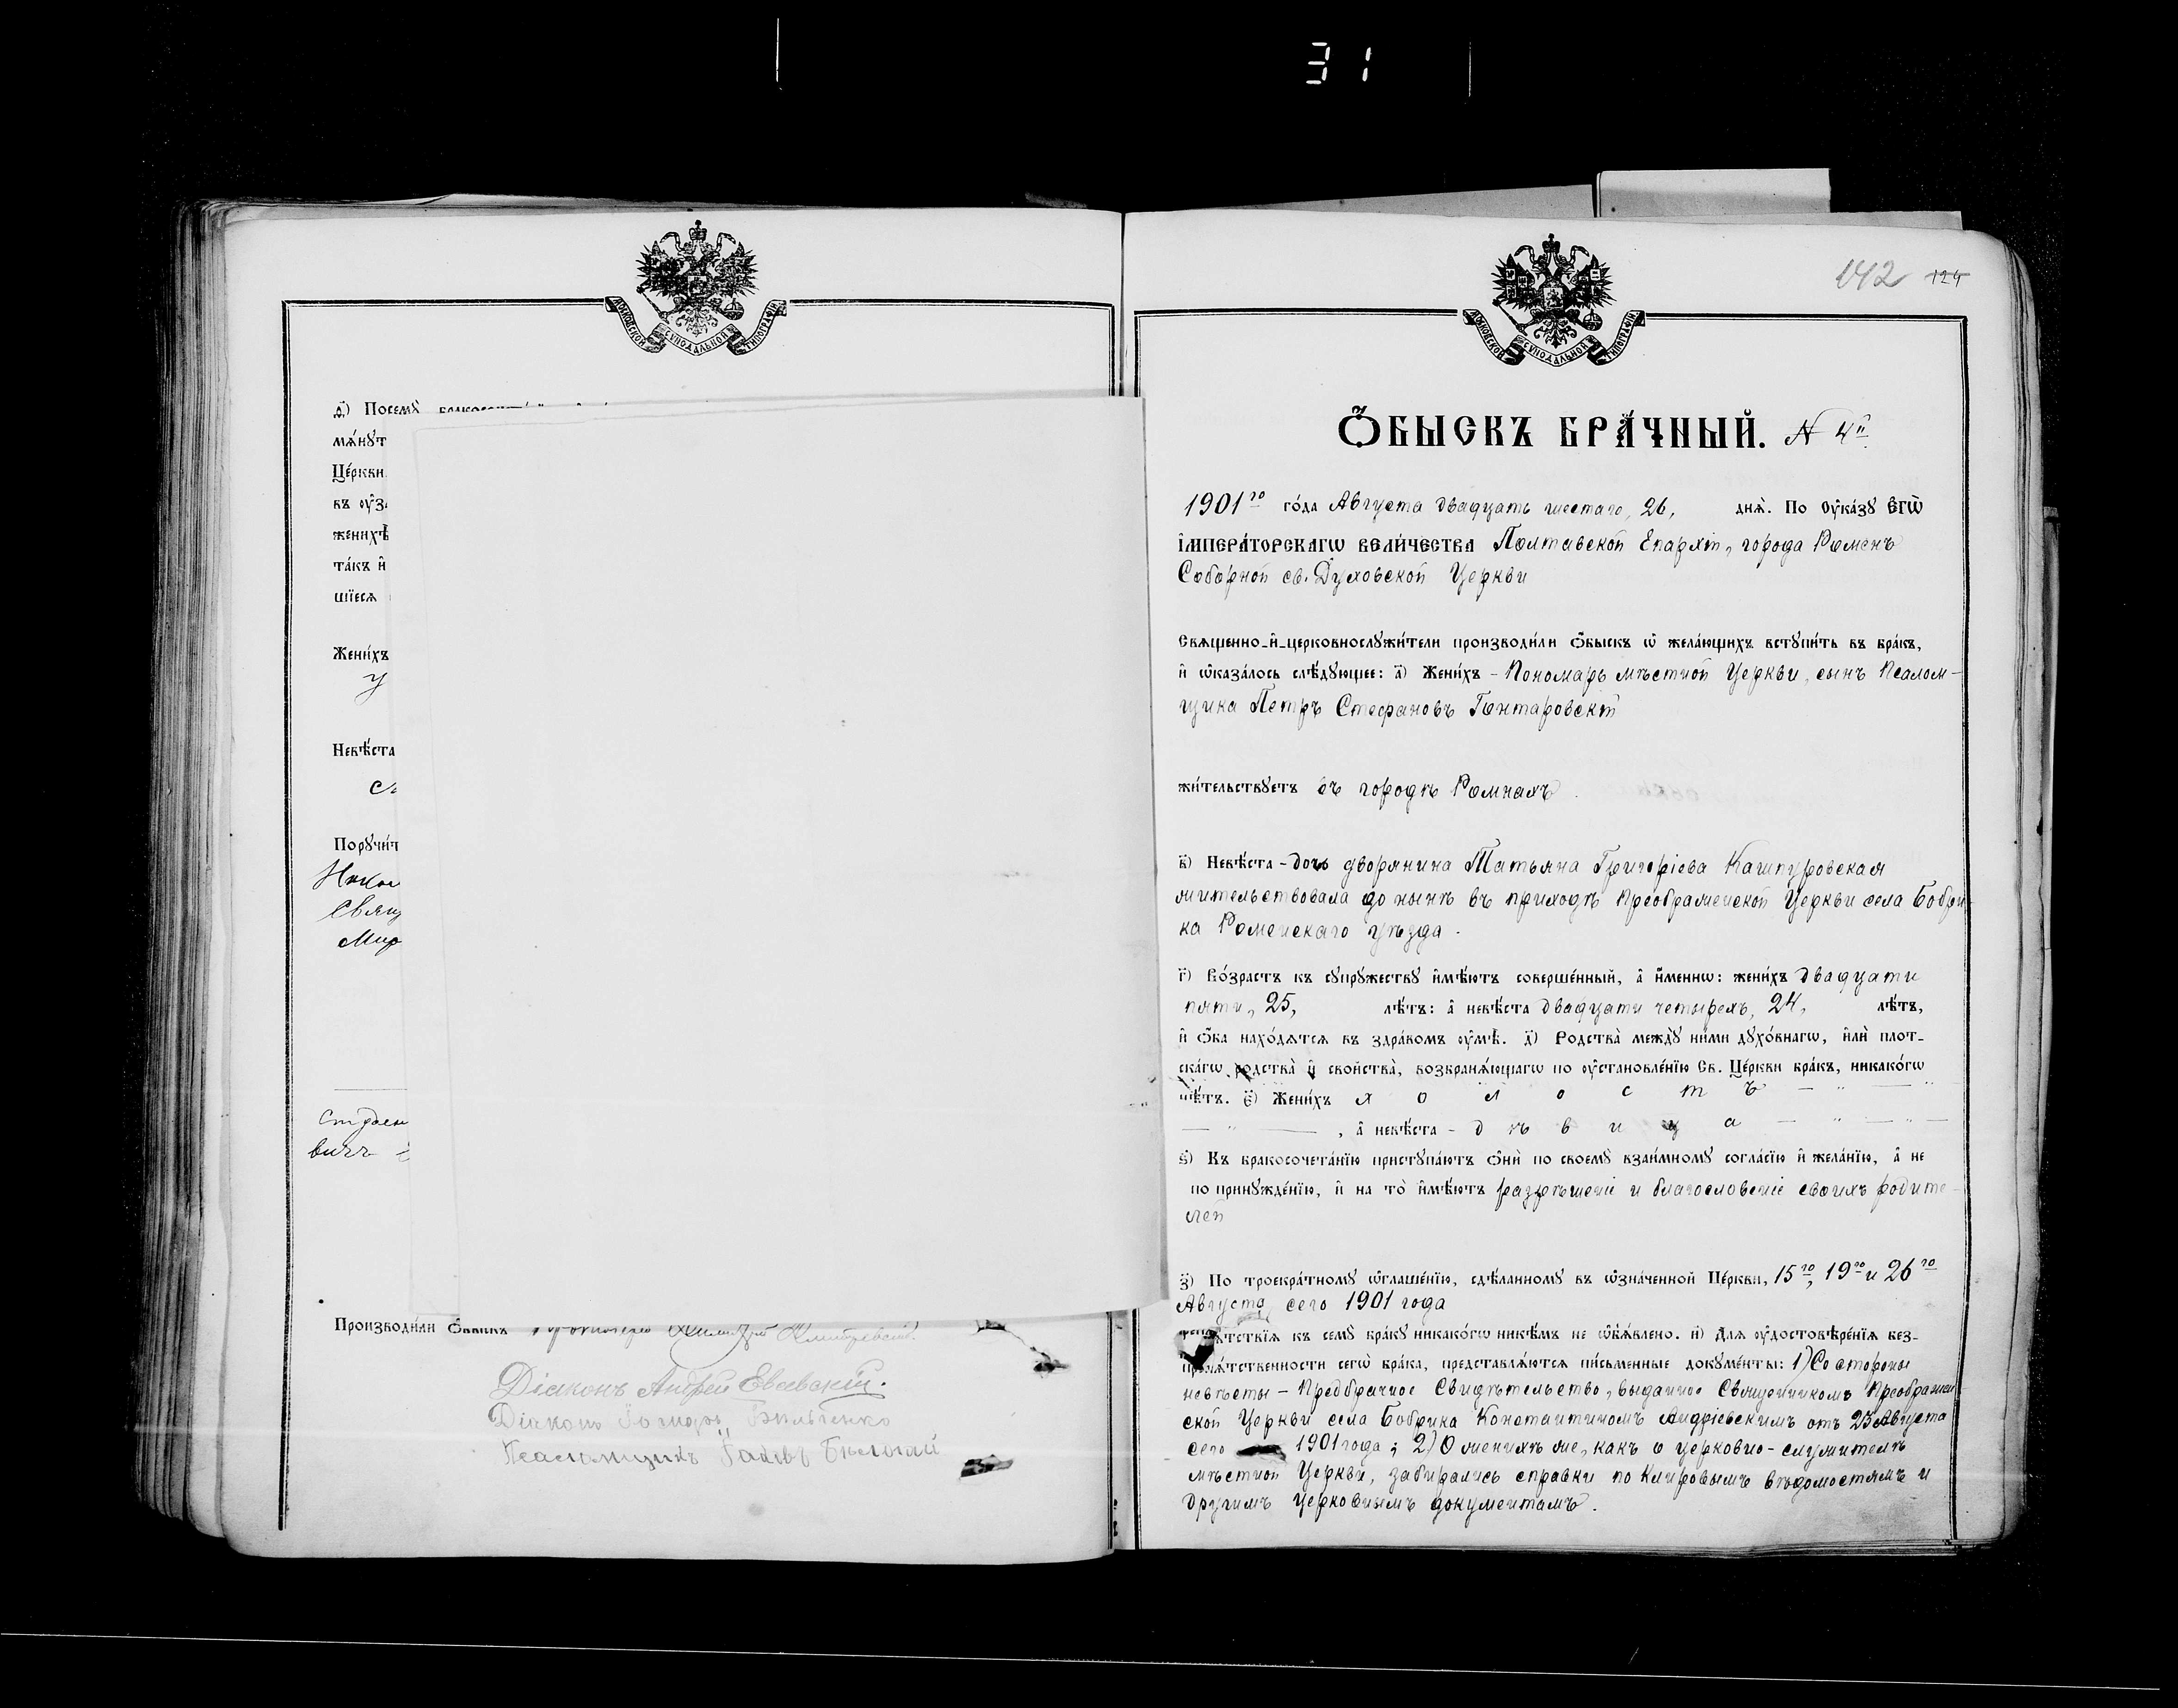 31
МОСКОВСКОЙ СѴНОДАЛЬНОЙ ТИПОГРАФІИ
д҃) Посемꙋ
мѧ́нꙋт
Це́ркви
въ оу҆з
жених
та́къ и҆
шїесѧ
Жени́хъ
у
Невѣ́ста
Порꙋчи́т
Свящ
Мир
вичъ
Производи́ли ѻ҆́быскъ
Діаконъ Андрей Евсевскій.
Діаконъ
Псаломщикъ
142 124
МОСКОВСКОЙ СѴНОДАЛЬНОЙ ТИПОГРАФІИ
Ѻ҆́БЫСКЪ БРА́ЧНЫЙ. N 4й
1901го го́да Августа двадцать шестаго, 26, днѧ̀. По оу҆ка́зꙋ Є҆ГѠ̀
І҆МПЕРА́ТОРСКАГѠ ВЕЛИ́ЧЕСТВА Полтавской Епархіи, города Роменъ
Соборной св. Духовской Церкви
Свѧщенно-и҆-церковнослꙋжи́тели производи́ли ѻ҆́быскъ ѡ҆ жела́ющихъ встꙋпи́ть въ бра́къ,
и҆ ѡ҆каза́лось слѣ́дꙋющее: а҃) Жени́хъ - Пономарь мѣстной Церкви, сынъ Псалом-
щика Петръ Стефановъ Гонтаровскій
жи́тельствꙋетъ въ городѣ Ромнахъ.
в҃) Невѣ́ста - дочь дворянина Татьяна Григоріева Кашпуровская
жительствовала до нынѣ въ приходѣ Преображенской Церкви села Бобри-
ка Роменскаго уѣзда.
г҃) Во́зрастъ къ сꙋпрꙋжествꙋ и҆мѣ́ютъ соверше́нный, а҆ и҆́меннѡ: жени́хъ двадцати
пяти, 25, лѣ́тъ: а҆ невѣ́ста двадцати четырехъ, 24, лѣ́тъ,
и҆ ѻ҆́ба нахо́дѧтсѧ въ здра́вомъ оу҆мѣ̀. д҃) Родства̀ междꙋ̀ ни́ми дꙋхо́внагѡ, и҆лѝ плот-
ска́гѡ родства̀ и҆ свойства̀, возбранѧ́ющагѡ по оу҆становле́нїю Св. Це́ркви бра́къ, никако́гѡ
нѣ́тъ. є҃) Жени́хъ холостъ — „ — „
— „ — , а҆ невѣ́ста - дѣвица — „ — „ —
ѕ҃) Къ бракосочета́нїю пристꙋпа́ютъ ѻ҆нѝ по своемꙋ̀ взаи́мномꙋ согла́сїю и҆ жела́нїю, а҆ не
по принꙋжде́нїю, и҆ на то̀ и҆мѣ́ютъ разрѣшеніе и благословеніе своихъ родите-
лей
з҃) По троекра́тномꙋ ѡ҆глаше́нїю, сдѣ́ланномꙋ въ ѡ҆зна́ченной Це́ркви, 15го, 19го и 26го
Августа сего 1901 года
препѧ́тствїѧ къ семꙋ̀ бра́кꙋ никако́гѡ никѣ́мъ не ѡ҆б̾ѧ́влено. и҃) Длѧ оу҆достовѣре́нїѧ без-
препѧ́тственности сегѡ̀ бра́ка, представлѧ́ютсѧ пи́сьменные докꙋме́нты: 1) Со стороны
невѣсты - Предбрачное Свидѣтельство, выданное Священникомъ Преображен-
ской Церкви села Бобрика Константиномъ Андріевскимъ отъ 25 Августа
сего 1901 года; 2) О женихѣ же, какъ о церковно-служителѣ
мѣстной Церкви, забирались справки по Клировымъ вѣдомостямъ и
другимъ церковнымъ документамъ.